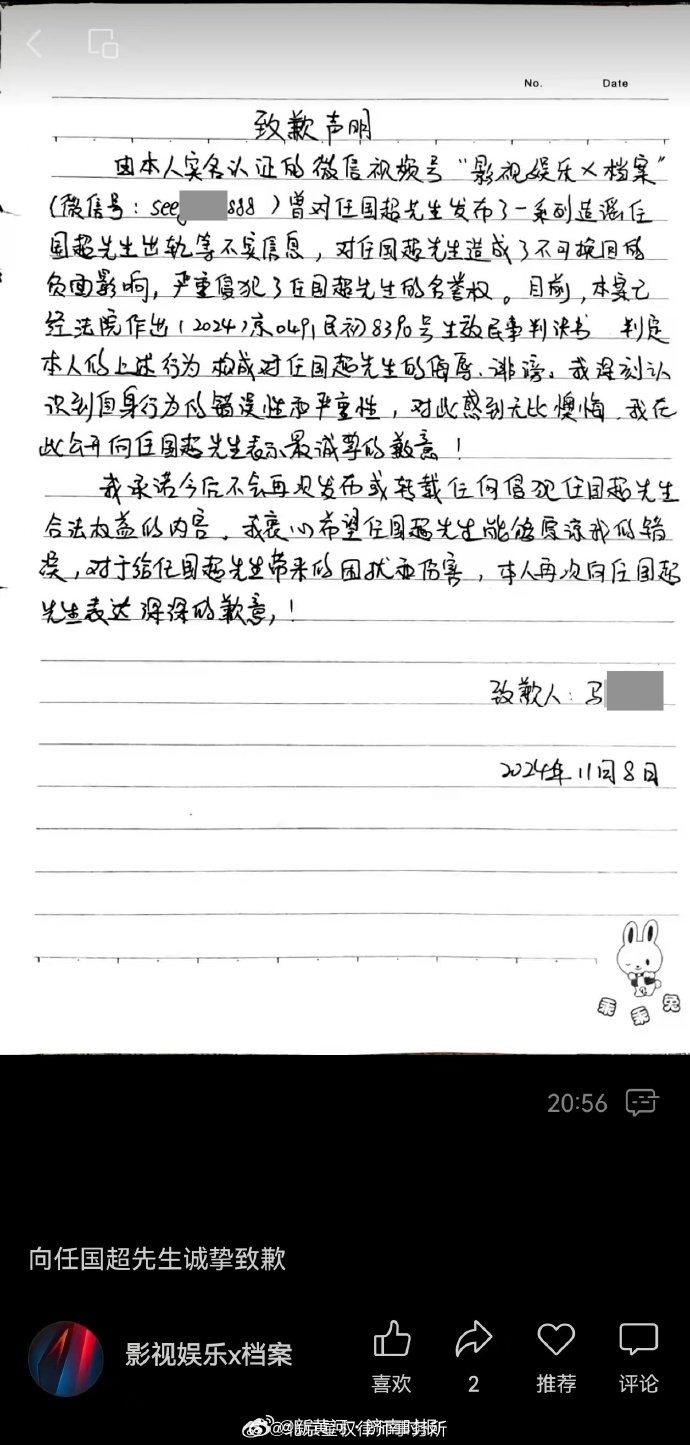 No. Date
致歉声明
由本人实名认证的微信视频号“影视娱乐X档案”
(微信号：see 888）曾对任国超先生发布了一系列造谣任
国超先生出轨等不实信息，对任国超先生造成了不可挽回的
负面影响，严重侵犯了任国超先生的名誉权。目前，本案已
经法院作出（2024）京0491民初8390号生效民事判决书 判定
本人的上述行为构成对任国超先生的侮辱、诽谤。我深刻认
识到自身行为的错误性和严重性，对此感到无比懊悔，我在
此公开向任国超先生表示最诚挚的歉意！
我承诺今后不会再次发布或转载任何侵犯任国超先生
合法权益的内容。我衷心希望任国超先生能够原谅我的错
误，对于给任国超先生带来的困扰和伤害，本人再次向任国超
先生表达深深的歉意，！
致歉人：马
2024年11月8日
乖乖兔
20:56
向任国超先生诚挚致歉
影视娱乐x档案
喜欢 2 推荐 评论